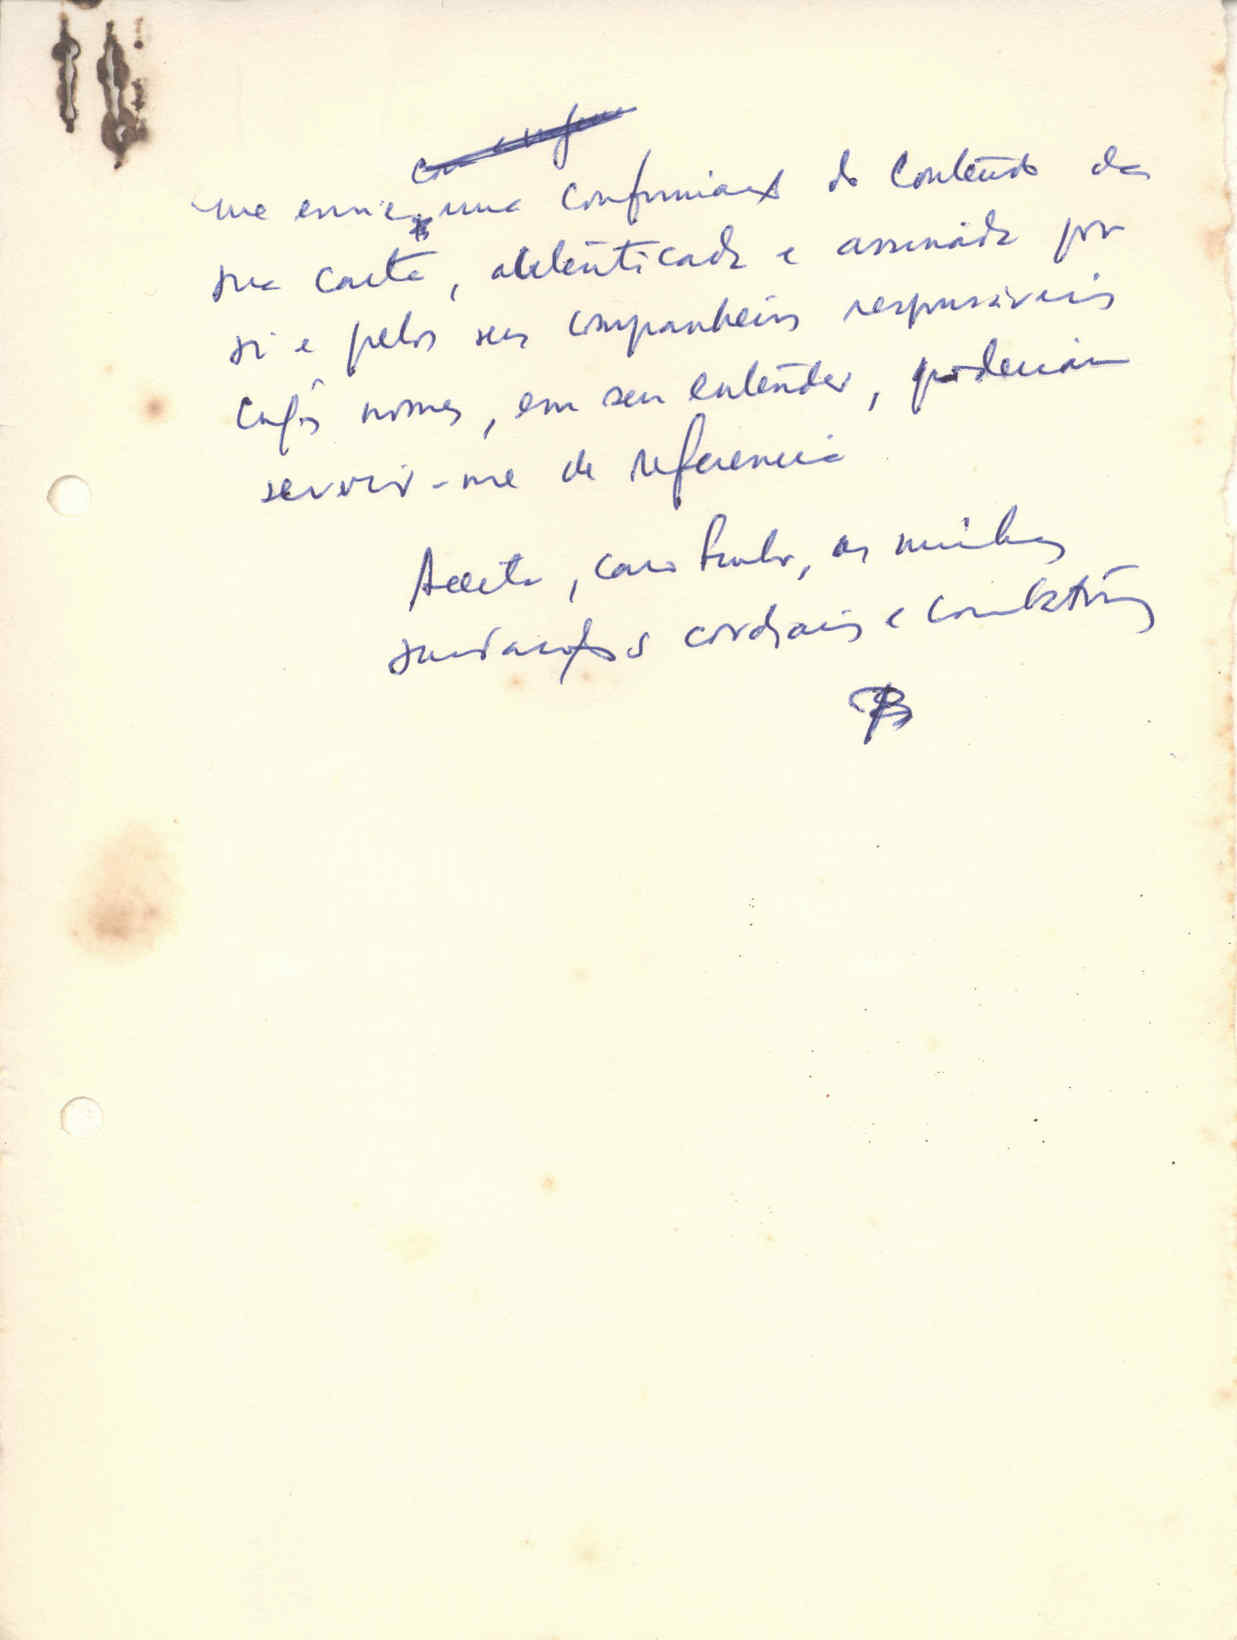 me envie uma confirmação do conteúdo da
sua carta, autenticada e assinada por
si e pelos seus companheiros responsáveis
cujos nomes, em seu entender, poderiam
servir-me de referencia
Aceite, caro Paulo, as minhas
saudações cordiais e combativas